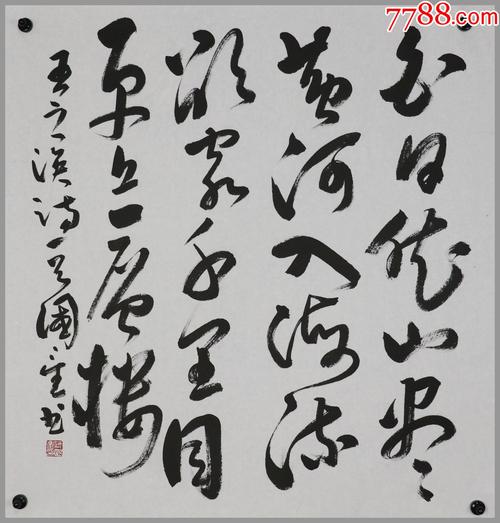 7788.com
白日依山尽
黄河入海流
欲穷千里目
更上一层楼
王之涣诗一首 國书